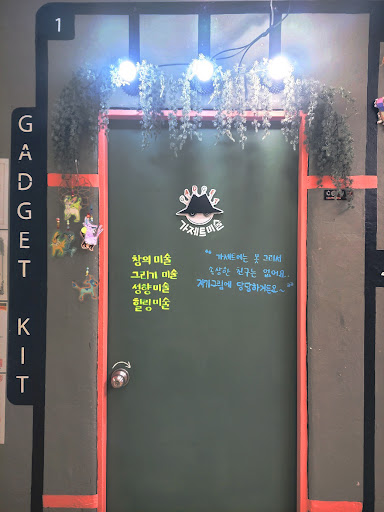 1
GADGET KIT
가제트미술
창의 미술
그리기 미술
성향 미술
힐링 미술
"가제트에는 못 그려서
속상한 친구는 없어요.
자기그림에 당당하거든요~"